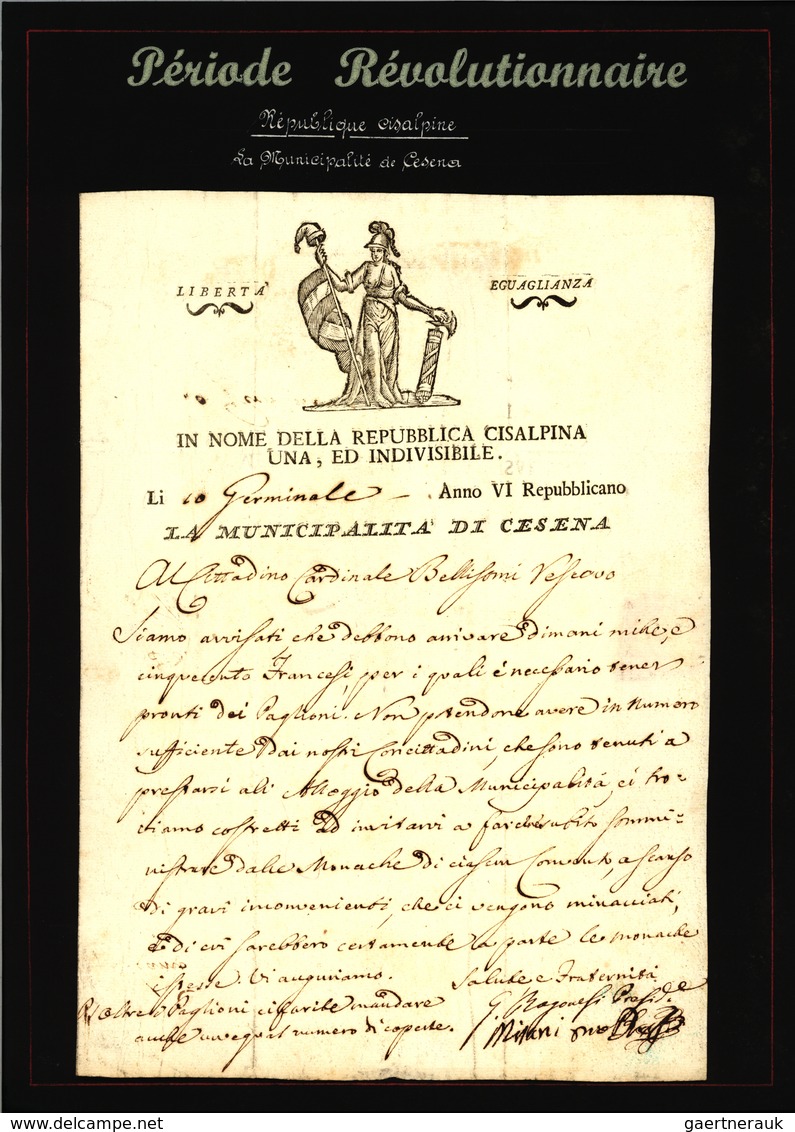 Période Révolutionnaire
République cisalpine
La Municipalité de Cesena
LIBERTA' EGUAGLIANZA
IN NOME DELLA REPUBBLICA CISALPINA
UNA, ED INDIVISIBILE.
Li 10 Germinale - Anno VI Repubblicano
LA MUNICIPALITA DI CESENA
Al Cittadino Cardinale Bellisomi Vescovo
Siamo avvisati che debbono arrivare dimani mille, e
cinquecento Francesi, per i quali é necessario tener
pronti dei Paglioni. Non potendone avere in numero
sufficiente dai nostri Concittadini, che sono tenuti a
prestarsi all' Alloggio della Municipalità, ci tro=
viamo costretti ad invitarvi a farcene subito sommi=
nistrare dalle Monache di ciascun Convento, a scanso
di gravi inconvenienti, che ci vengono minacciati,
e di cui sarebbero certamente a parte le monache
istesse. Vi auguriamo. Salute e Fraternità
Oltre i Paglioni ci farete mandare
anche un egual numero di coperte.
Milani
delcampe.net
gaertnerauk